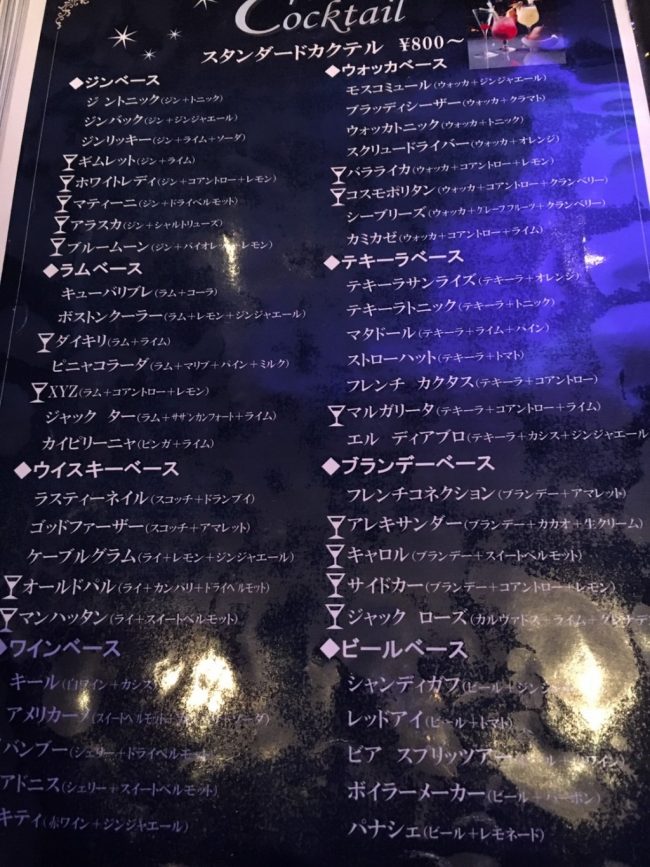 Cocktail
スタンダードカクテル ¥800～
◆ジンベース
ジントニック(ジン+トニック)
ジンバック(ジン+ジンジャエール)
ジンリッキー(ジン+ライム+ソーダ)
ギムレット(ジン+ライム)
ホワイトレディ(ジン+コアントロー+レモン)
マティーニ(ジン+ドライベルモット)
アラスカ(ジン+シャルトリューズ)
ブルームーン(ジン+バイオレット+レモン)
◆ラムベース
キューバリブレ(ラム+コーラ)
ボストンクーラー(ラム+レモン+ジンジャエール)
ダイキリ(ラム+ライム)
ピニャコラーダ(ラム+マリブ+パイン+ミルク)
XYZ(ラム+コアントロー+レモン)
ジャック ター(ラム+サザンカンフォート+ライム)
カイピリーニャ(ピンガ+ライム)
◆ウイスキーベース
ラスティーネイル(スコッチ+ドランブイ)
ゴッドファーザー(スコッチ+アマレット)
ケーブルグラム(ライ+レモン+ジンジャエール)
オールドパル(ライ+カンパリ+ドライベルモット)
マンハッタン(ライ+スイートベルモット)
◆ワインベース
キール(白ワイン+カシス
アメリカーノ(スイートベルモット+ ソーダ)
バンブー(シェリー+ドライベルモット)
アドニス(シェリー+スイートベルモット)
キティ(赤ワイン+ジンジャエール)
◆ウォッカベース
モスコミュール(ウォッカ+ジンジャエール)
ブラッディシーザー(ウォッカ+クラマト)
ウォッカトニック(ウォッカ+トニック)
スクリュードライバー(ウォッカ+オレンジ)
バラライカ(ウォッカ+コアントロー+レモン)
コスモポリタン(ウォッカ+コアントロー+クランベリー)
シーブリーズ(ウォッカ+グレープフルーツ+クランベリー)
カミカゼ(ウォッカ+コアントロー+ライム)
◆テキーラベース
テキーラサンライズ(テキーラ+オレンジ)
テキーラトニック(テキーラ+トニック)
マタドール(テキーラ+ライム+パイン)
ストローハット(テキーラ+トマト)
フレンチ カクタス(テキーラ+コアントロー)
マルガリータ(テキーラ+コアントロー+ライム)
エル ディアブロ(テキーラ+カシス+ジンジャエール
◆ブランデーベース
フレンチコネクション(ブランデー+アマレット)
アレキサンダー(ブランデー+カカオ+生クリーム)
キャロル(ブランデー+スイートベルモット)
サイドカー(ブランデー+コアントロー+レモン)
ジャック ローズ(カルヴァドス+ライム+グレナデ
◆ビールベース
シャンディガフ(ビール+ジン
レッドアイ(ビール+トマト)
ビア スプリッツアー(ビール+ ワイン)
ボイラーメーカー(ビール+バーボン)
パナシェ(ビール+レモネード)